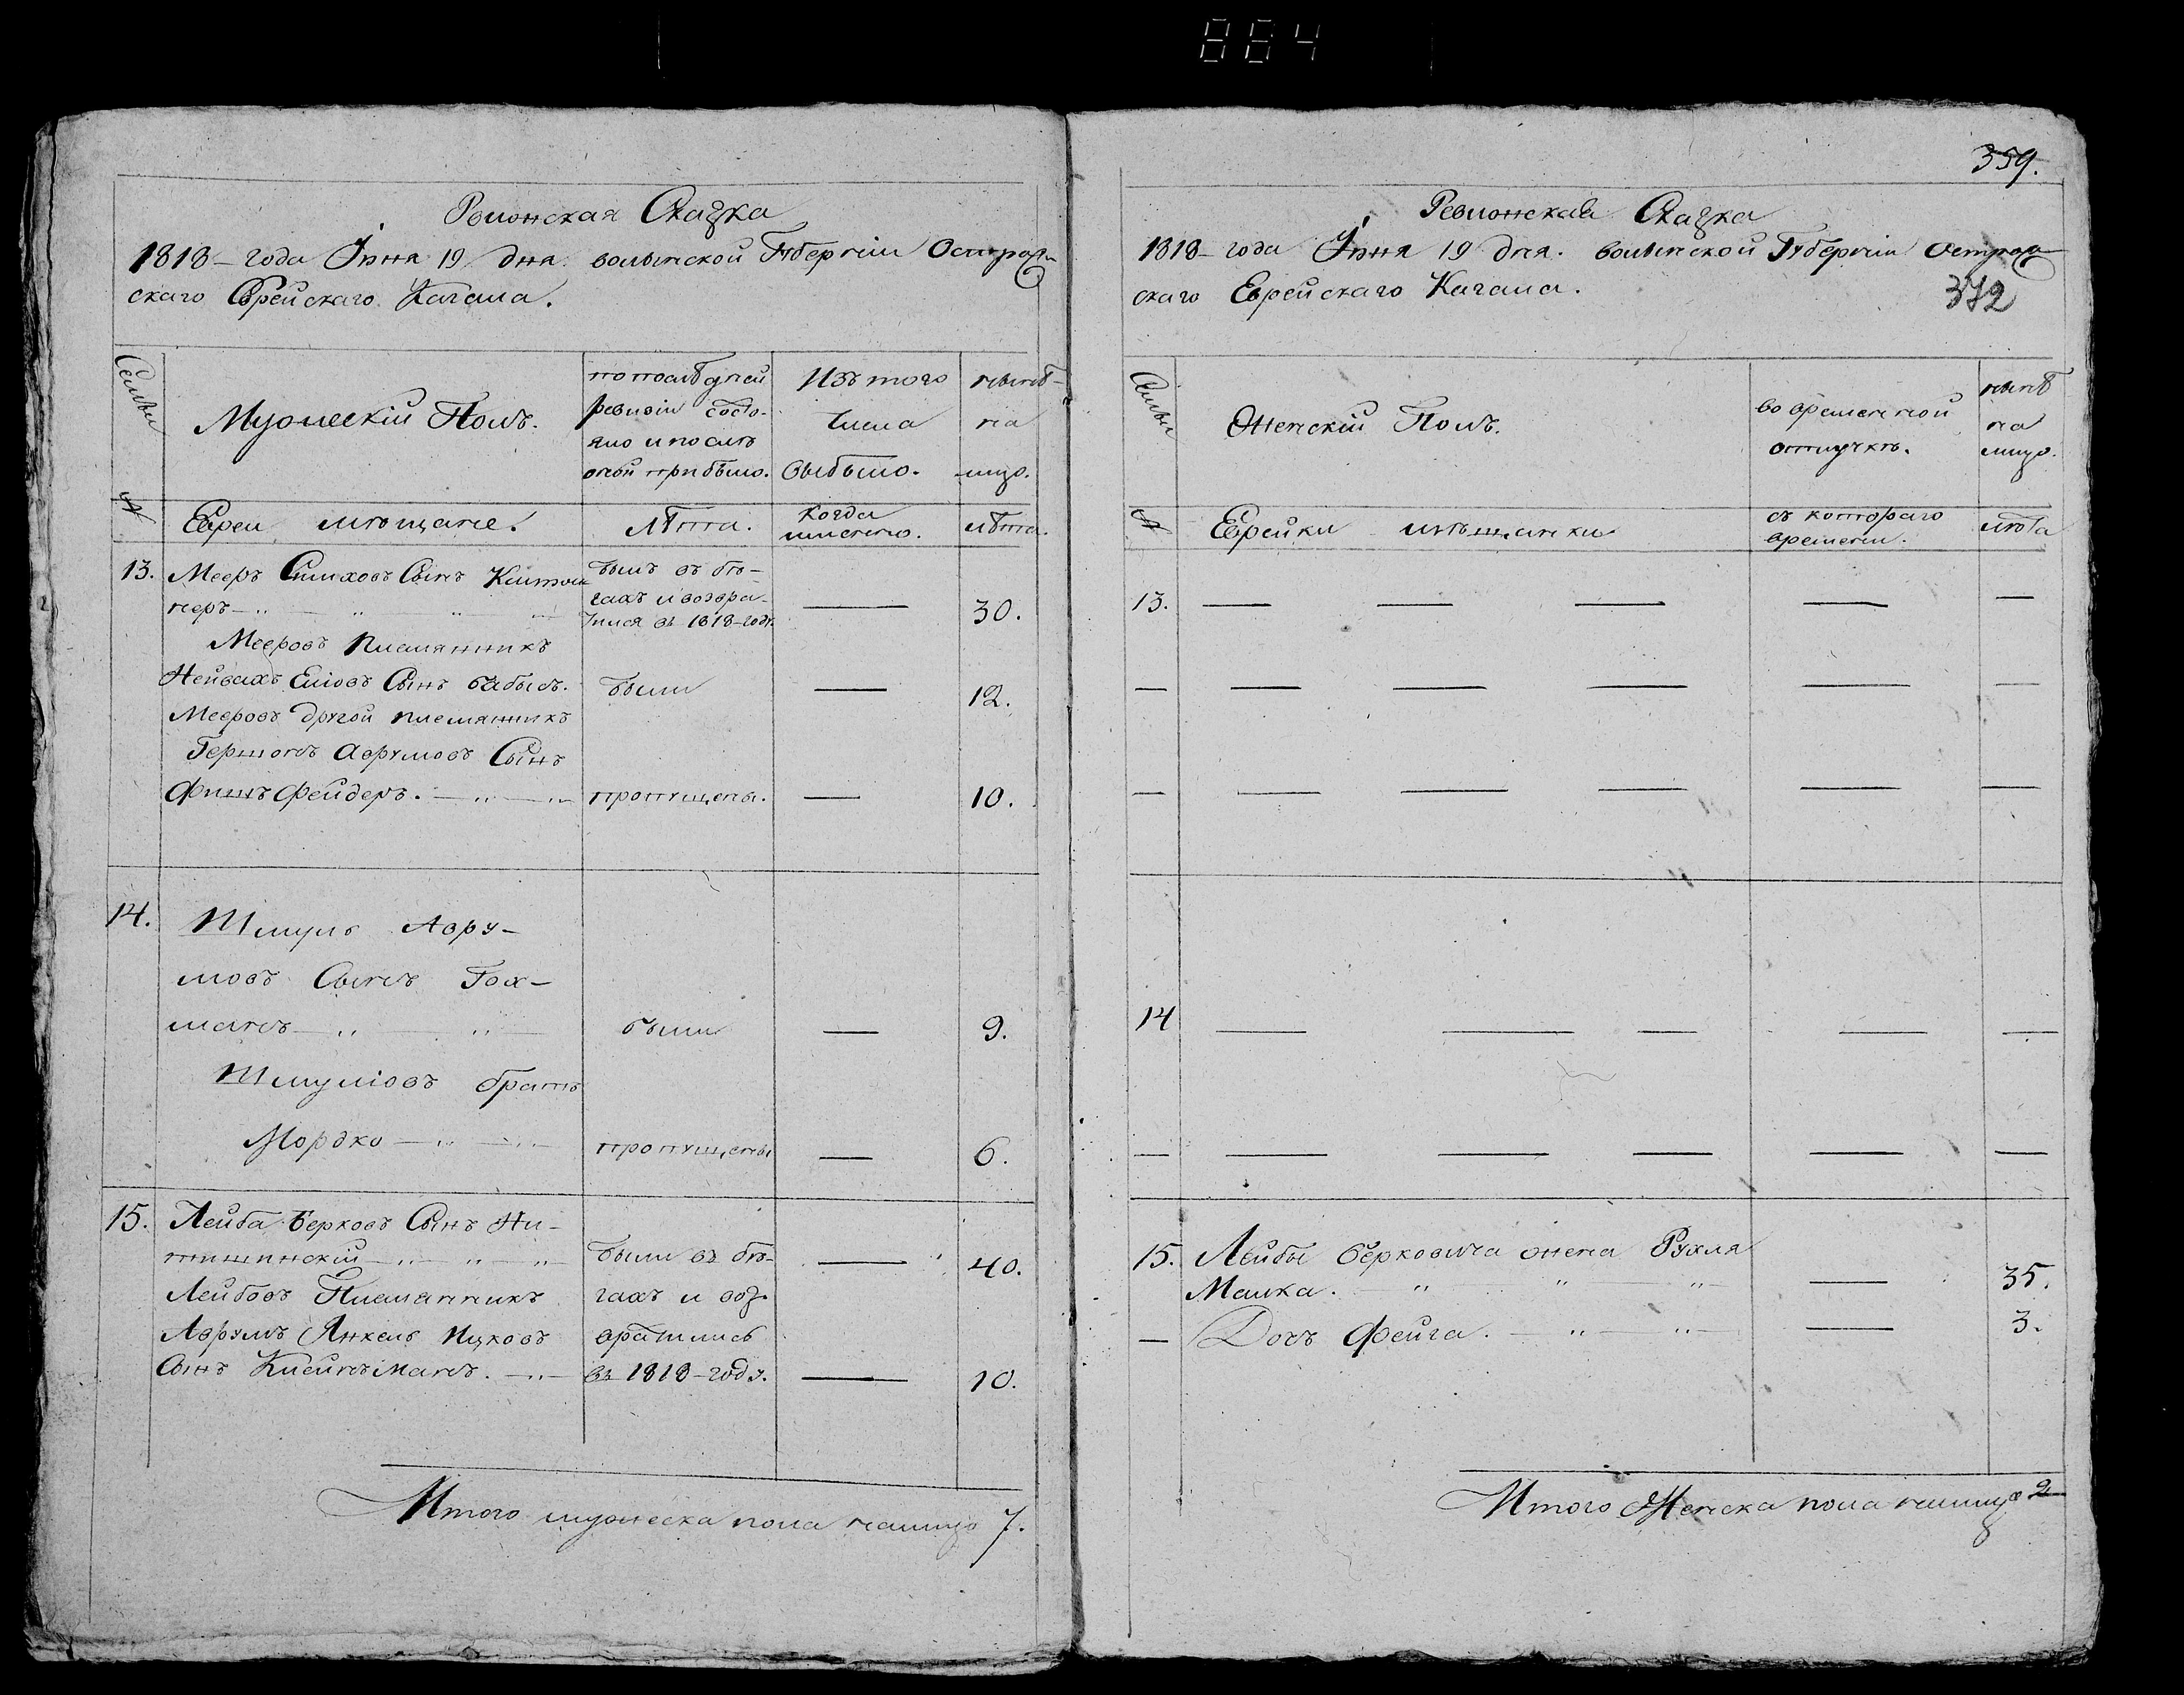 884
Ревизская Сказка
1818 – года Іюня 19 дня волынской Губерніи Острож-
скаго Еврейскаго Кагала.
Семьи
Мужескій Полъ.
по последней
ревизіи состо-
яло и после
оной прибыло.
Изъ того
числа
выбыло.
ныне
на
лицо.
№
Евреи мѣщане.
лѣта.
когда
именно.
лѣта.
13.
Мееръ
Сынъ
былъ въ бѣ-
гахъ и возвра-
тился въ 1818-году.
30.
Мееровъ племянникъ
Сынъ
были
12.
Мееровъ другой племянникъ
Гершонъ Аврумовъ Сынъ
Фишъ
пропущены.
10.
14.
Шмуль Авру-
мовъ Сынъ Гох-
манъ
были
9.
Шмуліовъ братъ
Мордко
пропущены
6.
15.
Лейба Берковъ Сынъ Не-
тишинскій
были въ бѣ-
40.
Лейбовъ Племянникъ
гахъ и воз-
Аврумъ Янкель Ицковъ
вратились
Сынъ Клейнъманъ.
въ 1818-году.
10.
Итого мужеска пола налицо 7.
359.
Ревизская Сказка
1818 – года Іюня 19 дня. волынской Губерніи Острож-
скаго Еврейскаго Кагала.
372
Семьи
Женскій Полъ.
во временной
отлучкѣ.
нынѣ
на
лицо.
№
Еврейки мѣщанки
съ котораго
времени.
лѣта
13.
14
15.
Лейбы Берковича жена Рухля
Малка.
35.
Дочь Фейга.
3.
Итого Женска пола налицо 2